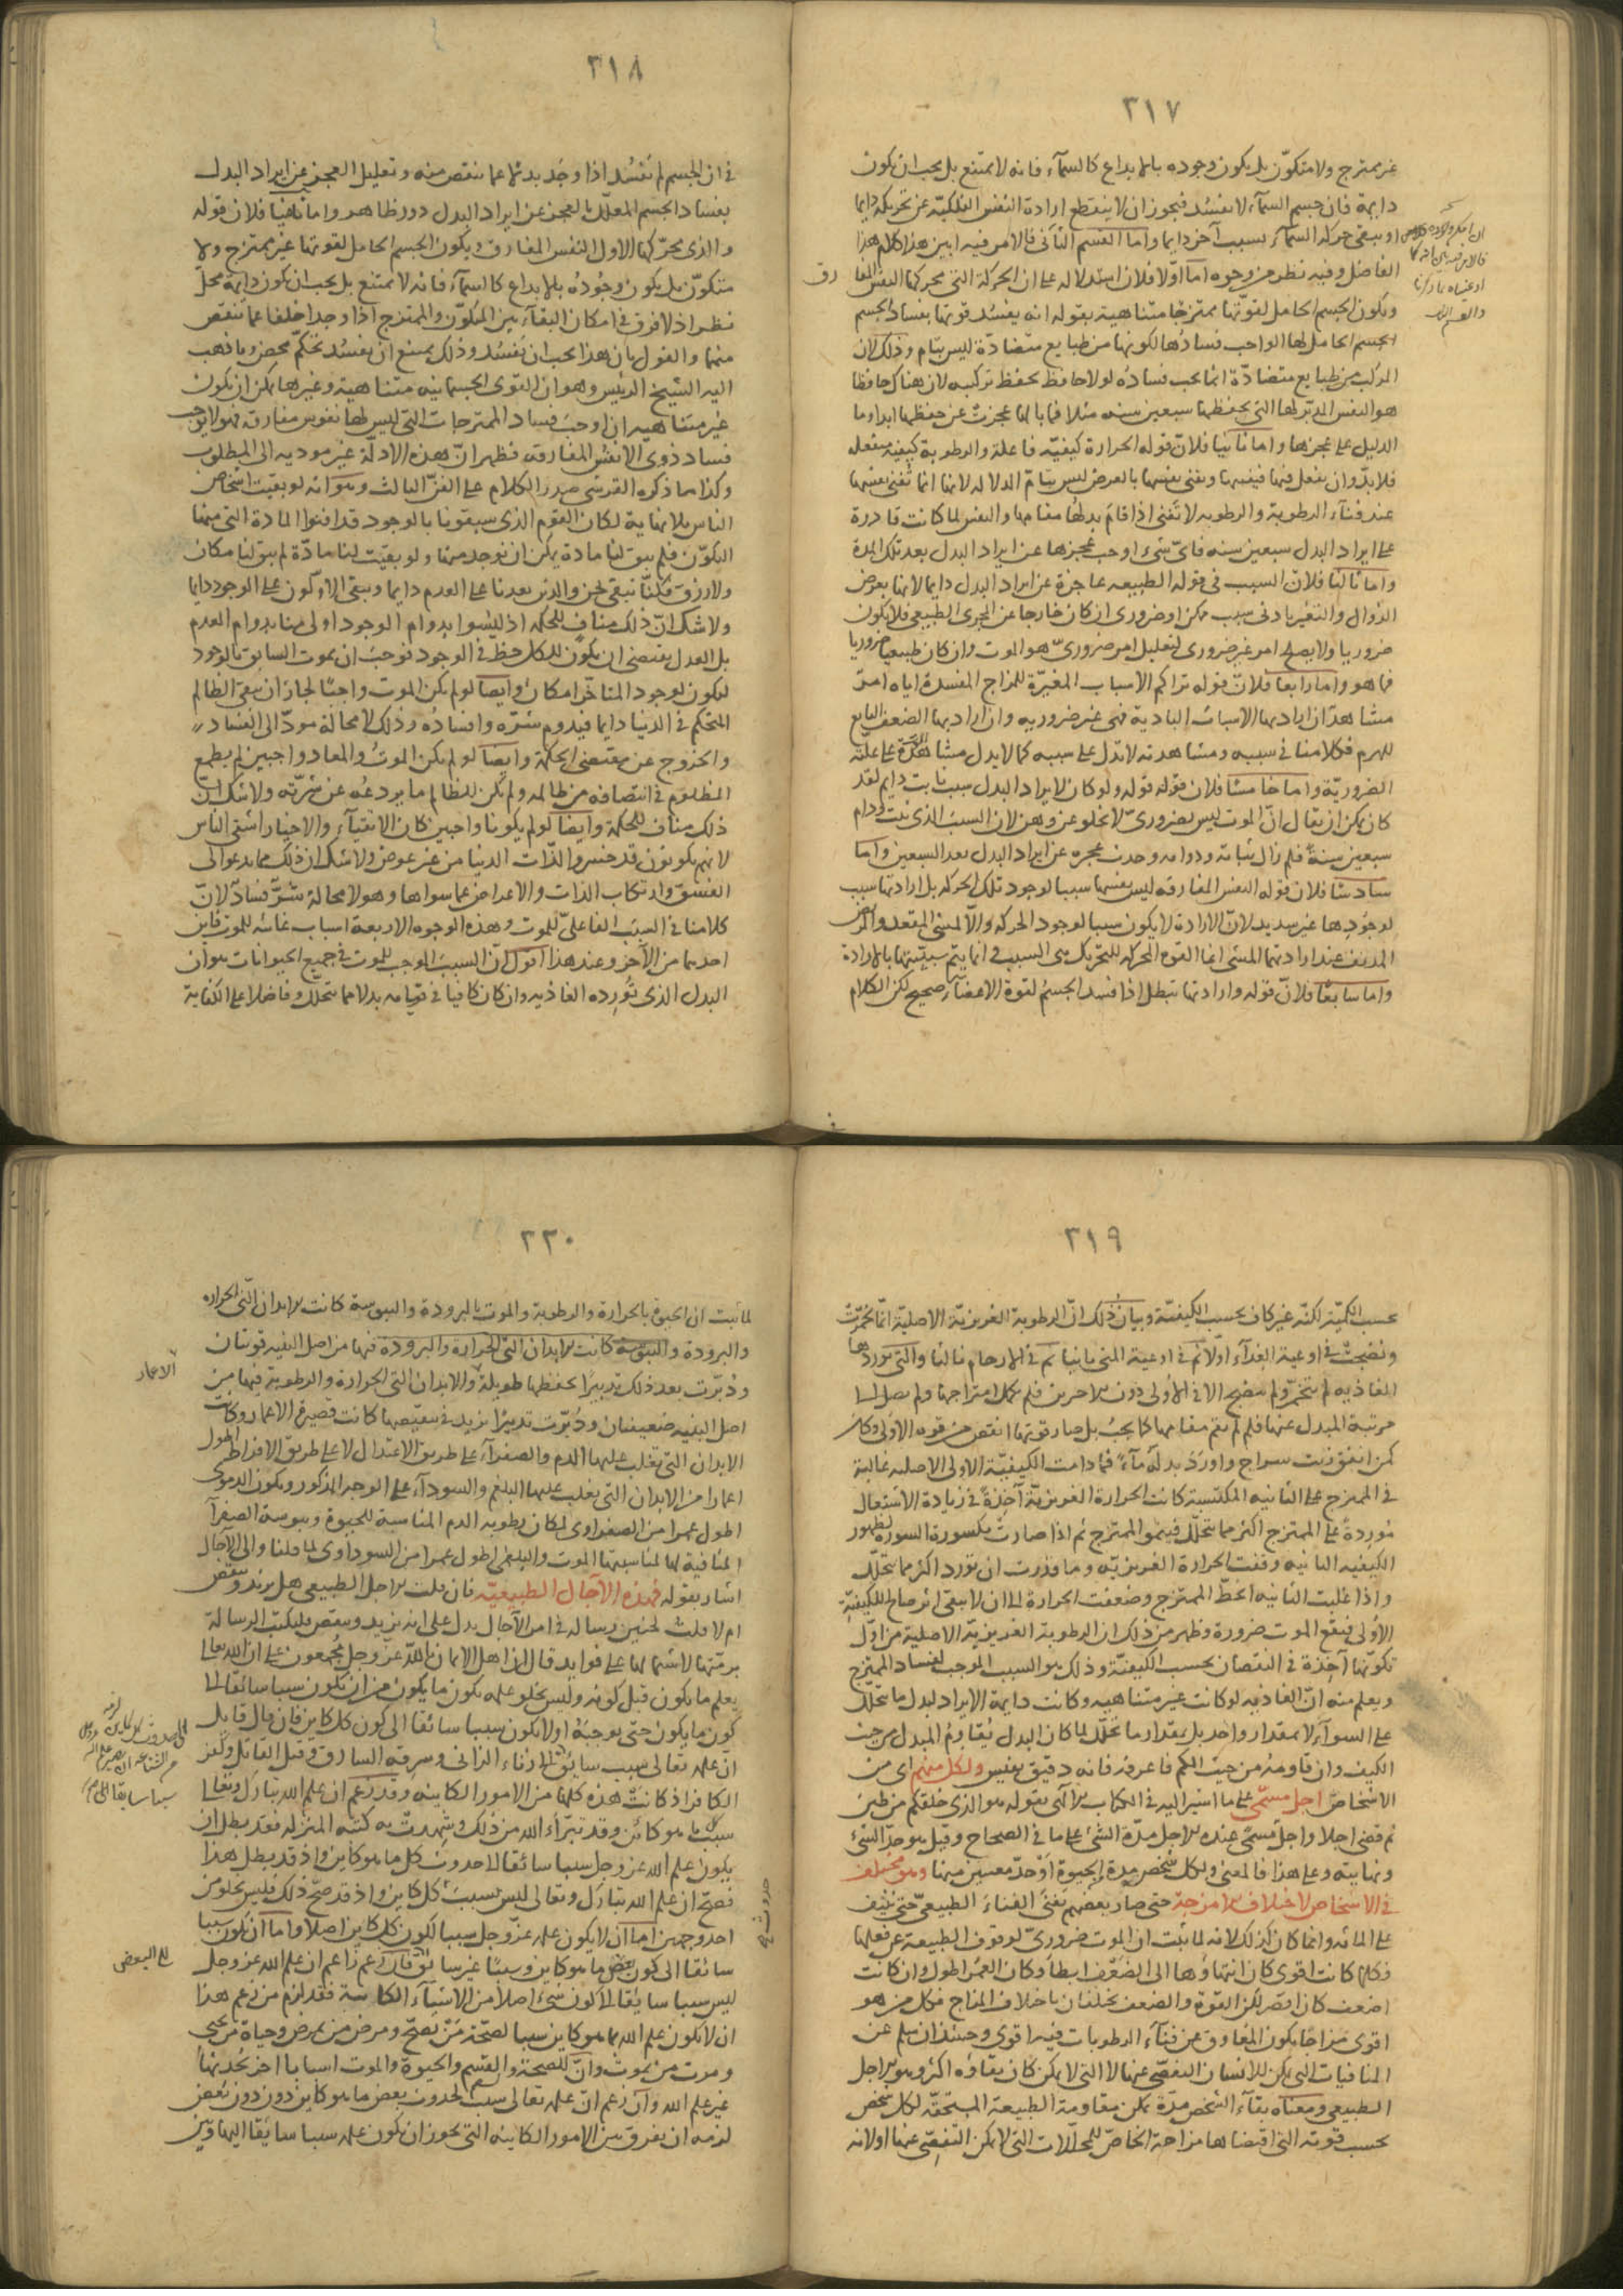 ٣١٧
غير ممتزج ولا متكوّن بل يكون وجوده بالابداع كالسمآء فانه لا يمتنع بل يجب ان يكون
دايمة فان جسم السمآء لا يفسُد فيجوز ان لا ينقطع ارادة النفس الفلكيّة عن تحريكه دايما
او يبقى حركة السمآء بسبب آخر دايما واما القسم الثانى فالامر فيه ابين هذا كلام هذا
الفاضل وفيه نظر من وجوه امّا اوّلا فلان استدلاله على ان الحركة التى يحركها النفس المفا رق
ويكون الجسم الحامل لقوّتها ممتزجا متناهية بقوله انه يفسُد قوتها بفساد الجسم
الجسم الحامل لها الواجب فسادها لكونها من طبايع متضادّة ليس بتام وذلك لان
المركب من طبايع متضادّة انما يجب فسادُه لولا حافظ يحفظ تركيبه لان هناك حافظا
هو النفس المدبّر لها التى يحفظها سبعين سنه مثلا فما بالها عجزت عن حفظها ابدا وما
الدليل على عجزها واما ثانيا فلانّ قوله الحرارة كيفيّه فاعلة والرطوبة كيفية منفعلة
فلا بدّ وان يفعل فيها فيفنيها وتفنى نفسها بالعرض ليس بتامّ الدلالة لانها انما تُفنى نفسها
عند فنآء الرطوبة والرطوبه لا تفنى اذا قام بدلها مقامها والنفس لما كانت قادرة
على ايراد البدل سبعين سنه فاىّ شىء اوجب عجزها عن ايراد البدل بعد تلك المدة
واما ثالثا فلان السبب فى قوله الطبيعه عاجزة عن ايراد البدل دايما لانها بعرض
الزوال والتغيّر بادنى سبب ممكن او ضرورى ان كان خارجا عن المجرى الطبيعى فلا يكون
ضروريا ولا يصلح امر غير ضرورى لتعليل امر ضرورىّ هو الموت وان كان طبيعيا ضروريا
فما هو واما رابعا فلانّ قوله تراكم الاسباب المغيّرة للمزاج المفسدة اياه امرٌ
مشاهدٌ ان اراد بها الاسباب البادية فهى غير ضروريه وان اراد بها الضعف التابع
للهرم فكلامنا فى سببه ومشاهدته لا تدل على سببه كما لا يدل مشاهدة على علّته
الضروريّة واما خامسا فلان قوله ولو كان لايراد البدل سبب ثابت دايم لقد
كان يمكن ان يقال انّ الموت ليس بضرورىّ لا يخلو عن وهن لان السبب الذى ثبت ودام
سبعين سنة فلم زال ثباته ودوامه وحدث عجزه عن ايراد البدل بعد السبعين واما
سادسًا فلان قوله النفس المفارقه ليس نفسها سببا لوجود تلك الحركه بل ارادتها سبب
لوجودها غير سديد لانّ الارادة لا يكون سببا لوجود الحركه والّا لمشى المقعد والمرض
المدنف عند ارادتهما المشى انما القوة المحركه للتحريك هى السبب انما يتم سببيّتها بالارادة
واما سابعًا فلانّ قوله وارادتها تبطل اذا فسد الجسم لقوة الاعضآء صحيح لكن الكلام
٣١٨
فى ان الجسم لِمَ يفسُد اذا وجَد بدلا عما ينقص منه وتعليل العجز عن ايراد البدل
بفساد الجسم المعلّل بالعجز عن ايراد البدل دور ظاهر واما ثامنا فلان قوله
والذى يحرّكها الاول النفس المفارق ويكون الجسم الحامل لقوتها غير ممتزج ولا
متكوّن بل يكون وجُودُه بالابداع كالسمآء فانه لا يمتنع بل يجب ان يكون دايمة محلّ
نظر اذ لا فرق فى امكان البقآء بين المتكوّن والممتزج اذا وجدا خلفا عما ينقص
منهما والقول بان هذا يجب ان يفسُد وذلك يمتنع ان يفسُد تحكّم محض وما ذهب
اليه الشيخ الرئيس وهو ان القوى الجسمانيه متناهية وغيرها يمكن ان يكون
غير متناهيه ان اوجب فساد الممتزجات التى ليس لها نفوس مفارقه فهو لا يوجب
فساد ذوى الانفس المفارقه فظهر انّ هذه الادلّة غير موديه الى المطلوب
وكذا ما ذكره القرشى صدر الكلام على الفنّ الثالث وهو انه لو بقيت اشخاص
الناس بلا نهاية لكان القوم الذى سبقونا بالوجود قد افنوا المادة التى منها
التكوّن فلم يبق لنا مادة يمكن ان نوجد منها ولو بقيت لنا مادّة لم يبق لنا مكان
ولا رزق فكنّا نبقى نحن والذين بعدنا على العدم دايما ويبقى الاولون على الوجود دايما
ولا شك انّ ذلك منافٍ للحكمه اذ ليسُوا بدوام الوجود اولى منا بدوام العدم
بل العدل يقتضى ان يكون للكل حظّ فى الوجود فوجب ان يموت السابق بالوجود
ليكون لوجود المتاخّر امكان وايضا لو لم يكن الموت واجبًا لجاز ان يبقى الظالم
المتحكم فى الدنيا دايما فيدوم شرّه وافسادُه وذلك لا محالة مودّ الى الفساد
والخروج عن مقتضى الحكمة وايضا لو لم يكن الموتُ والمعاد واجبين لم يطمع
المظلوم فى انتصافه من ظالمه ولم يكن للظالم ما يردعُه عن شرّته ولا شك انّ
ذلك منافٍ للحكمة وايضا لو لم يكونا واجبين كان الاتقيآء والاخيار اشقى الناس
لانهم يكونون قد خسروا لذّات الدنيا من غير عوض ولا شك ان ذلك مما يدعو الى
الفسق وارتكاب الذات والاعراض عما سواها وهو لا محالة شرٌّ فسادٌ لانّ
كلامنا فى السبب الفاعلىّ للموت وهذه الوجوه الاربعة اسباب غائيه للموت فاين
احدهما من الآخر وعند هذا اقول انّ السبب الموجب للموت فى جميع الحيوانات هو ان
البدل الذى تُورِده الغاذيه وان كان كافيا فى قيامه بدلا مما يتحلّل وفاضلا على الكفاية
٣١٩
بحسب الكميّة لكنّه غير كاف بحسب الكيفيّة وبيان ذلك انّ الرطوبة الغريزيّة الاصلية انّما تخمّرت
ونضجت فى اوعية الغذآء اوّلا ثم فى اوعية المنى ثانيا ثم فى الارحام ثالثا والتى توردها
الغاذيه لم تتخمّر ولم تنضج الا فى الاولى دون الاخرين فلم يكمل امتزاجها ولم يصل الى
مرتبة المبدل عنها فلم لم يقم مقامها كما يجبُ بل صار قوتها انقص من قوه الاولى وكان
كمن انفق زيت سراج واورَدَ بدله مآءً فما دامت الكيفيّة الاولى الاصليه غالبة
فى الممتزج على الثانيه المكتسبة كانت الحرارة الغريزيّة آخِذةً فى زيادة الاشتعال
مُورِدةً على الممتزج اكثر مما يتحلّل فينمو الممتزج ثم اذا صارت مكسورة السورة لظهور
الكيفيه الثانيه وقفت الحرارة الغريزيّه وما قدرت ان تورد اكثر مما يتحلّل
واذا غلبت الثانيه انحطّ الممتزج وضعفت الحرارة الى ان لا يبقى اثر صالح للكيفيّة
الاولى فيقع الموت ضرورة وظهر من ذلك ان الرطوبة الغريزيّه الاصلية من اوّل
تكوّنها آخِذة فى النقصان بحسب الكيفيّة وذلك هو السبب الموجب لفساد الممتزج
ويعلم منه انّ الغاذيه لو كانت غير متناهيه وكانت دايمة الايراد لبدل ما يتحلّل
على السوآء لا بمقدار واحد بل بمقدار ما يتحلّل لما كان البدل يُقاوِمُ المبدل من حيث
الكيف وان قاومه من حيث الكم فاعرفه فانه دقيق نفيس ولكل منهم اى من
الاشخاص اجل مسمّى على ما اشير اليه فى الكتاب الآلهى بقوله هو الذى خلقكم من طين
ثم قضى اجلا واجل مسمّى عنده الاجل مدّة الشىء على ما فى الصحاح وقيل هو حدّ الشىء
ونهايته وعلى هذا فالمعنى ولكل شخص مدة لحيوة او حدّ معيّن منها وهو مختلف
فى الاشخاص لاختلاف الامزجة حتى صار بعضهم يفنى الفناءَ الطبيعىّ حتى ينيف
على المائه وانما كان كذلك لانه لما ثبت ان الموت ضرورىّ لوقوف الطبيعة عن فعلها
فكلما كانت اقوى كان انتهاؤها الى الضعف ابطأ وكان العمر اطول وان كانت
اضعف كان اقصر لكن القوّة والضعف يختلفان باختلاف المزاج فكل من هو
اقوى مزاجا يكون المعاوق عن فنآء الرطوبات فيه اقوى وحينئذ ان سلم عن
المنافيات التى يمكن للانسان التفصّى عنها لا التى لا يمكن كان بقاؤه اكثر وهو الاجل
الطبيعى ومعناه بقآء الشخص مدّة يمكن مقاومة الطبيعة المستحقّه لكل شخص
بحسب قوته التى اقتضاها مزاجه الخاصّ للمحلّلات التى لا يمكن التفصّى عنها اولا نه
٣٢٠
لما ثبت ان الحيوة بالحرارة والرطوبة والموت بالبرودة واليبوسة كانت الابدان التى الحرارة
والبرودة واليبوسة كانت الابدان التى الحرارة والبرودة فيها من اصل البنيه قويتان
ودُبّرت بعد ذلك تدبيرًا يحفظها طويلة والابدان التى الحرارة والرطوبة فيها من
الاعمار
اصل البنيه ضعيفتان ودُبّرت تدبيرًا يزيد فى تنقيصها كانت قصيرة الاعمار وكانت
الابدان التى يغلب عليها الدم والصفرآء على طريق الاعتدال لا على طريق الافراط اطول
اعمارا من الابدان التى يغلب عليها البلغم والسودآء على الوجه المذكور ويكون الدموى
اطول عمرا من الصفراوى لمكان رطوبة الدم المناسبة للحيوة ويبوسة الصفرآ
المنافية لها لمناسبتها الموت والبلغمى اطول عمرا من السوداوى لما قلنا والى الآجال
اشار بقوله فهذه الآجال الطبيعيّه فان قلت الاجل الطبيعى هل يزيد وينقص
ام لا قلت لحنين رسالة فى امر الآجال يدل على انه يزيد وينقص فليكتب الرسالة
برمّتها لاشتمالها على فوايد قال ان اهل الايمان بالله عزّ وجل مُجمعون على ان الله تعالى
يعلم ما يكون قبل كونه وليس يخلو علمه بكون ما يكون من ان يكون سببا سائقا الى
كون ما يكون حتى يوجبَهُ او لا يكون سببا سائقا الى كون كل كاين فان قال قايل
انّ علمه تعالى سبب سايق الى زناء الزانى وسرقه السارق وقتل القاتل وكفر
الكافر اذ كانت هذه كلها من الامور الكاينه وقد زعم ان علم الله تبارك وتعالى
سبب كل ما هو كائن وقد تبرّاء الله من ذلك وشهدت به كتبه المنزله فقد بطل ان
يكون علم الله عز وجل سببا سائقا الى حدوث كل ما هو كاين واذ قد بطل هذا
فصحّ ان علم الله تبارك وتعالى ليس بسبب كل كاين واذ قد صحّ ذلك فليس يخلو من
احد وجهين اما ان لا يكون علمه عزّ وجل سببا لكون كل كاين اصلا واما ان يكون سببا
سائقا الى كون بعض ما هو كاين وسببًا غير سائق فان زعم زاعم ان علم الله عز وجل
الى البعض
ليس سببا سايقا الى كون شىء اصلا من الاشيآء الكاينة فقد لزم من زعم هذا
ان لا يكون علم الله بما هو كاين سببا لصحّة مَنْ يصحّ ومرض من يمرض وحياة من يحيى
وموت من يموت وانّ للصحة والقسم والحيوة والموت اسبابا اخر تحدثها
غير علم الله وان زعم انّ علمه تعالى سبب لحدوث بعض ما هو كاين دون دون بعض
لزمه ان يفرّق بين الامور الكاينه التى يجوز ان يكون علمه سببا سايقا اليها وبين